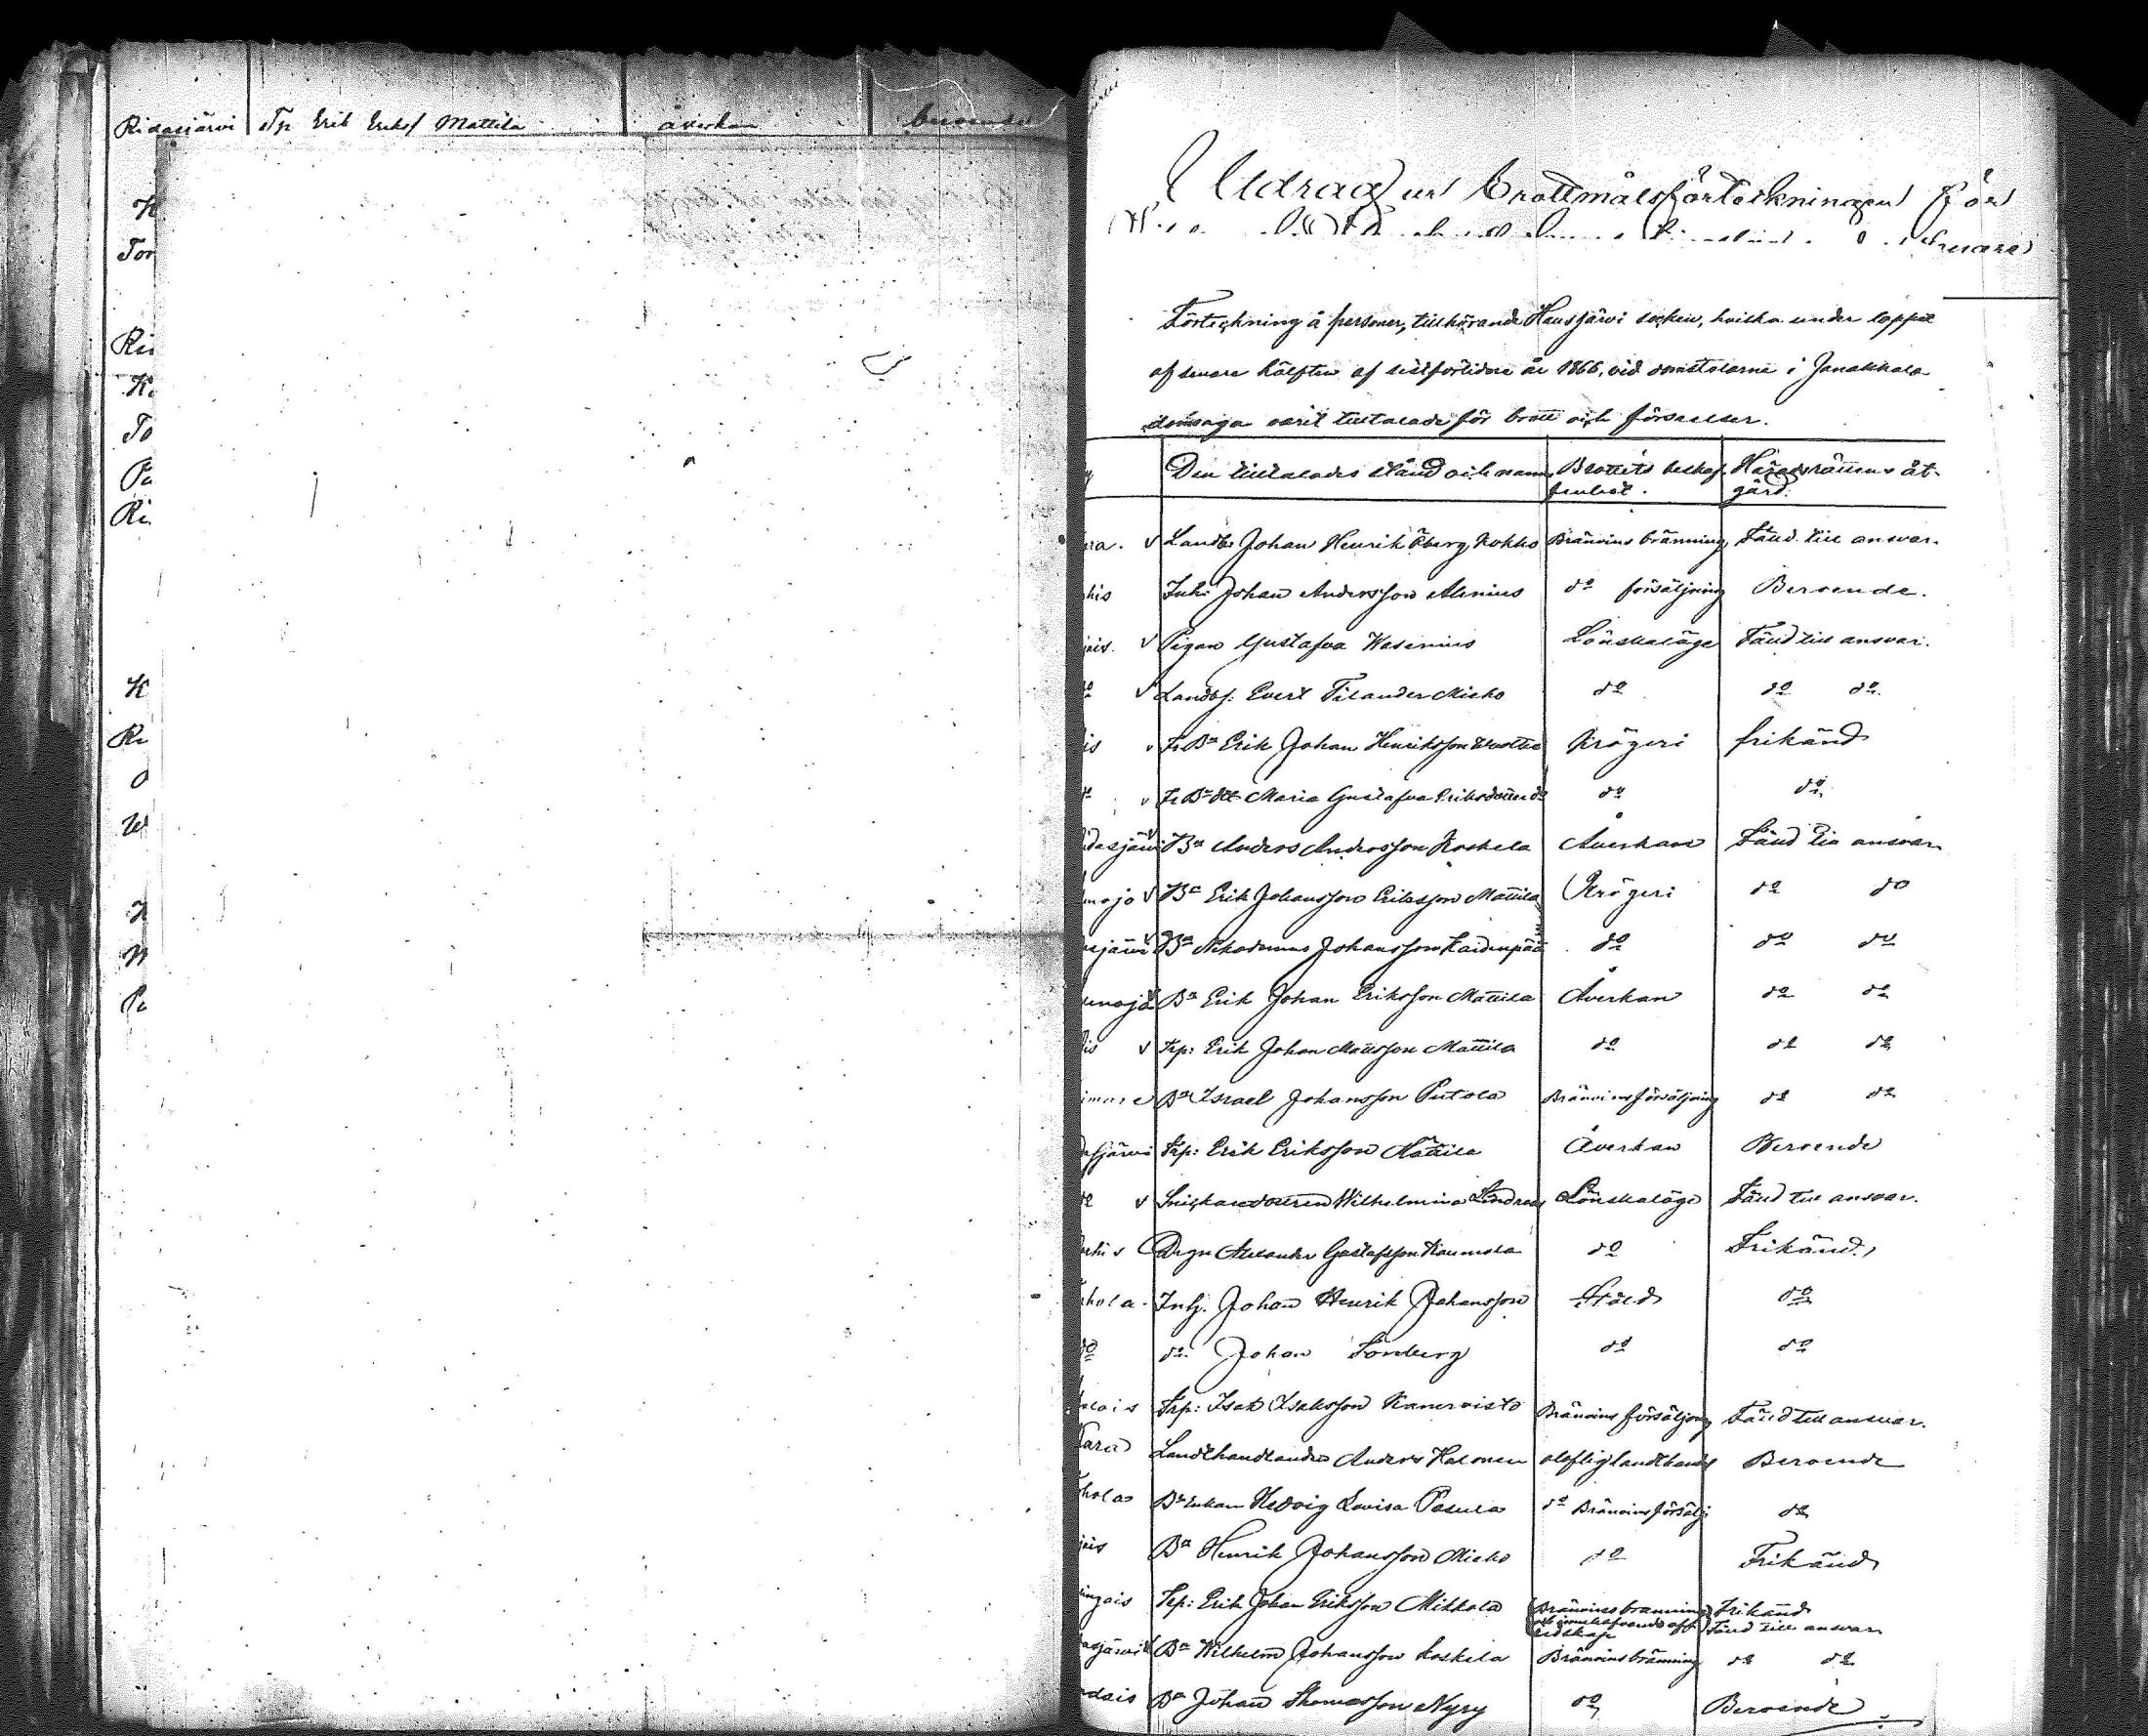 Ridasjärvi Trp Erik Eriks/ Mattila åverkan beroende
K
Tor
Rii
Ka
To
Pa
Ri
K
Ri
O
W
K
M
Pa
Utdrag ur Brottmålsförteckningen för
senare
Förteckning å personer, tillhörande Hausjärvi socken, hvilka under loppet
af senare hälften af sistförlidne år 1866, vid domstolarne i Janakkala
domsaga varit tilltalade för brott och förseelser.
Den tilltalades stånd och namn Brottets beskaf- Häradsrättens åt-
fenhet. gärd.
ra. v Landb: Johan Henrik Öberg Kokko Bränvins bränning Fäld till ansvar.
his Inh: Johan Andersson Alenius do försäljning Beroende.
jais. v Pigan Gustafva Wasenius Lönskaläge Fäld till ansvar.
do v Landbs: Evert Filander Micko do do do
is v Fr Bn Erik Johan Henriksson Krögeri frikänd
do v Fr Bn dtt Maria Gustafva Eriksdotter do do do
idasjärvi v Bn Anders Andersson Koskela Åverkan Fäld till ansvar
mojo v Bn Erik Johansson Eriksson Mattila Krögeri do do
sjärvi v Bn Nikodemus Johansson do do do
unojo v Bn Erik Johan Eriksson Mattila Åverkan do do
is v Trp: Erik Johan Mattsson Mattila do do do
imare Bn Israel Johansson Putola Bränvins försäljning do do
asjärvi Trp: Erik Eriksson Mattila Åverkan Beroende
do v Snickaredottren Wilhelmina Lönskaläge Fäld till ansvar.
Drgn Alexander Gustafsson do Frikänd.
hola. Inh. Johan Henrik Johansson Stöld do
do do Johan Sonberg do do
lais Trp: Isak Isaksson Kanervisto Bränvins försäljning Fäld till ansvar.
Kara Landthandlanden Anders Halonen olaflig landthandel Beroende
hola Bn Enkan Hedvig Lovisa Pasula do Bränvinsförsälj: do
jais Bn Henrik Johansson Micko do Frikänd
ingais Trp: Erik Johan Eriksson Mikkola Bränvinsbränning Frikänd
Fäld till ansvar
asjärvi v Bn Wilhelm Johansson Koskela Bränvinsbränning do do
dais Bn Johan Thomasson Nyry do Beroende